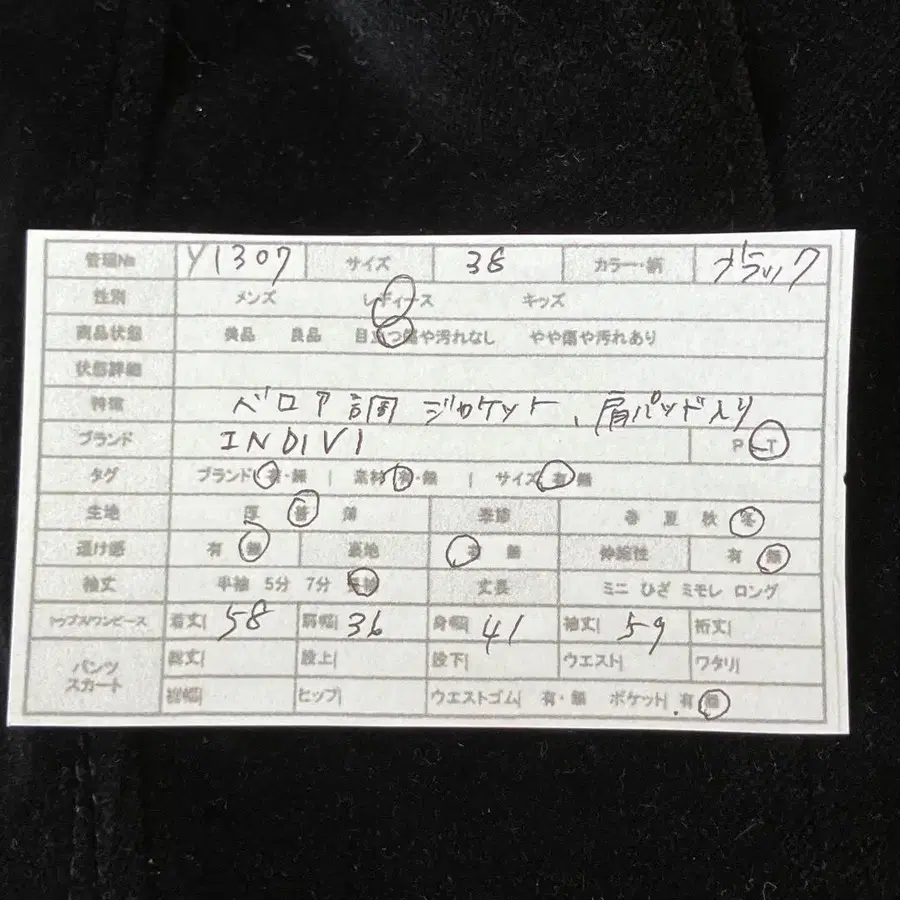 管理№ Y1307 サイズ 38 カラー・柄 ブラック
性別 メンズ レディース キッズ
商品状態 美品 良品 目立つ傷や汚れなし やや傷や汚れあり
状態詳細
特徴 ベロア調 ジャケット、肩パッド入り
ブランド INDIVI P T
タグ ブランド 有・無 | 素材 有・無 | サイズ 有 無
生地 厚 普 薄 季節 春 夏 秋 冬
透け感 有 無 裏地 有 無 伸縮性 有 無
袖丈 半袖 5分 7分 長袖 丈長 ミニ ひざ ミモレ ロング
トップス/ワンピース 着丈| 58 肩幅| 36 身幅| 41 袖丈| 59 裄丈|
パンツ スカート 総丈| 股上| 股下| ウエスト| ワタリ|
裾幅| ヒップ| ウエストゴム| 有・無 ポケット| 有 無